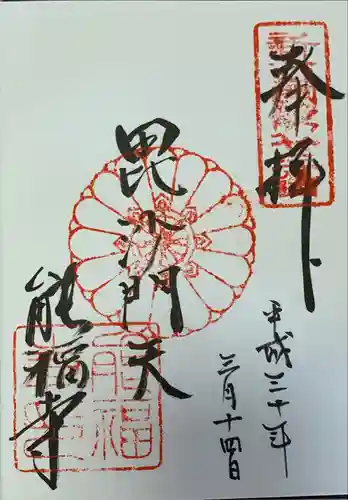 奉拝
平成三十年
三月十四日
毘沙門天
能福寺
能福